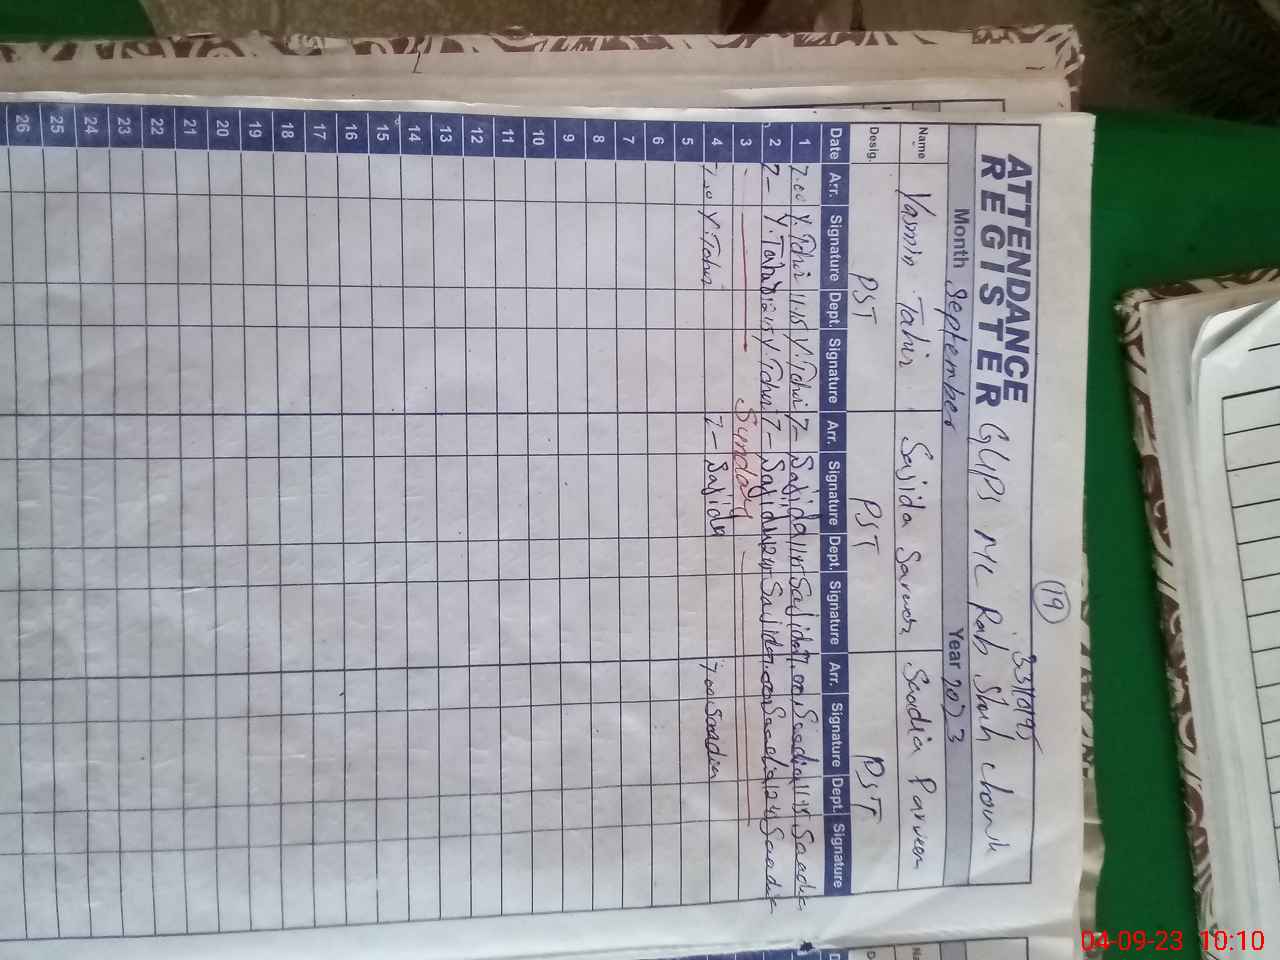 19
ATTENDANCE
REGISTER GGPS MC Rab Shah chowk
Month September Year 2023
Name Yasmin Tahir Sajida Sarwar Saadia Parveen
Desig. PST PST PST
Date Arr. Signature Dept. Signature Arr. Signature Dept. Signature Arr. Signature Dept. Signature
1 7.00 Y.Tahir 11.15 Y.Tahir 7- Sajida 11.15 Sajida 7.00 Saadia 11.15 Saadia
2 7- Y.Tahir 12.15 Y.Tahir 7- Sajida Sajida 7.00 Saadia Saadia
3 Sunday
4 7.00 Y.Tahir 7- Sajida 7.00 Saadia
5
6
7
8
9
10
11
12
13
14
15
16
17
18
19
20
21
22
23
24
25
26
04-09-23 10:10